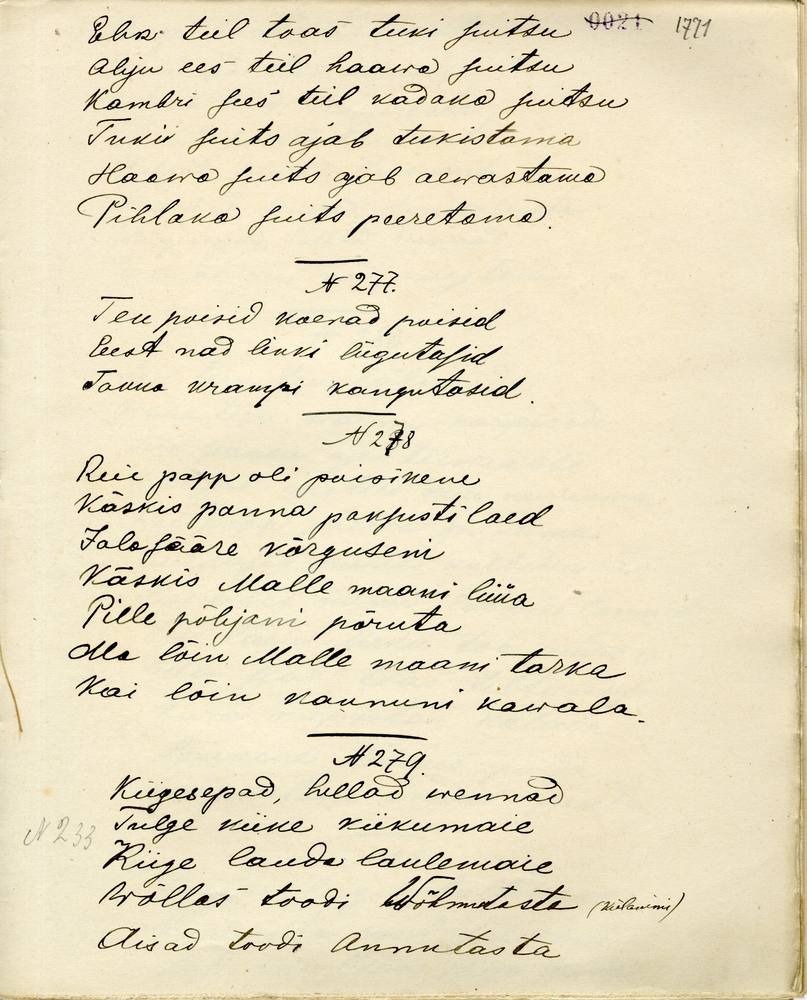 0021 1771
Ehk teil toas tuki suitsu
Ahju ees teil haawa suitsu
Kambri sees teil kadaka suitsu
Tuki suits ajab tukistama
Haawa suits ajab aewastama
Pihlaka suits peeretama.
N 277.
Teu poisid koerad poisid
Eest nad linki liigutasid
Taka krampi kangutasid.
N 278
Reie papp oli poisikene
Käskis panna paksusti laed
Jalasääre kõrguseni
Käskis Malle maani lüüa
Pille põhjani põruta
Ma lõin Malle maani tarka
Kai lõin kaununi kawala.
N 279
Kiigesepad, hellad wennad
N 233 Tulge kiike kiikumaie
Kiige lauda laulemaie
Wõllas toodi Wõhmutasta (külanimi)
Aisad toodi Annutasta